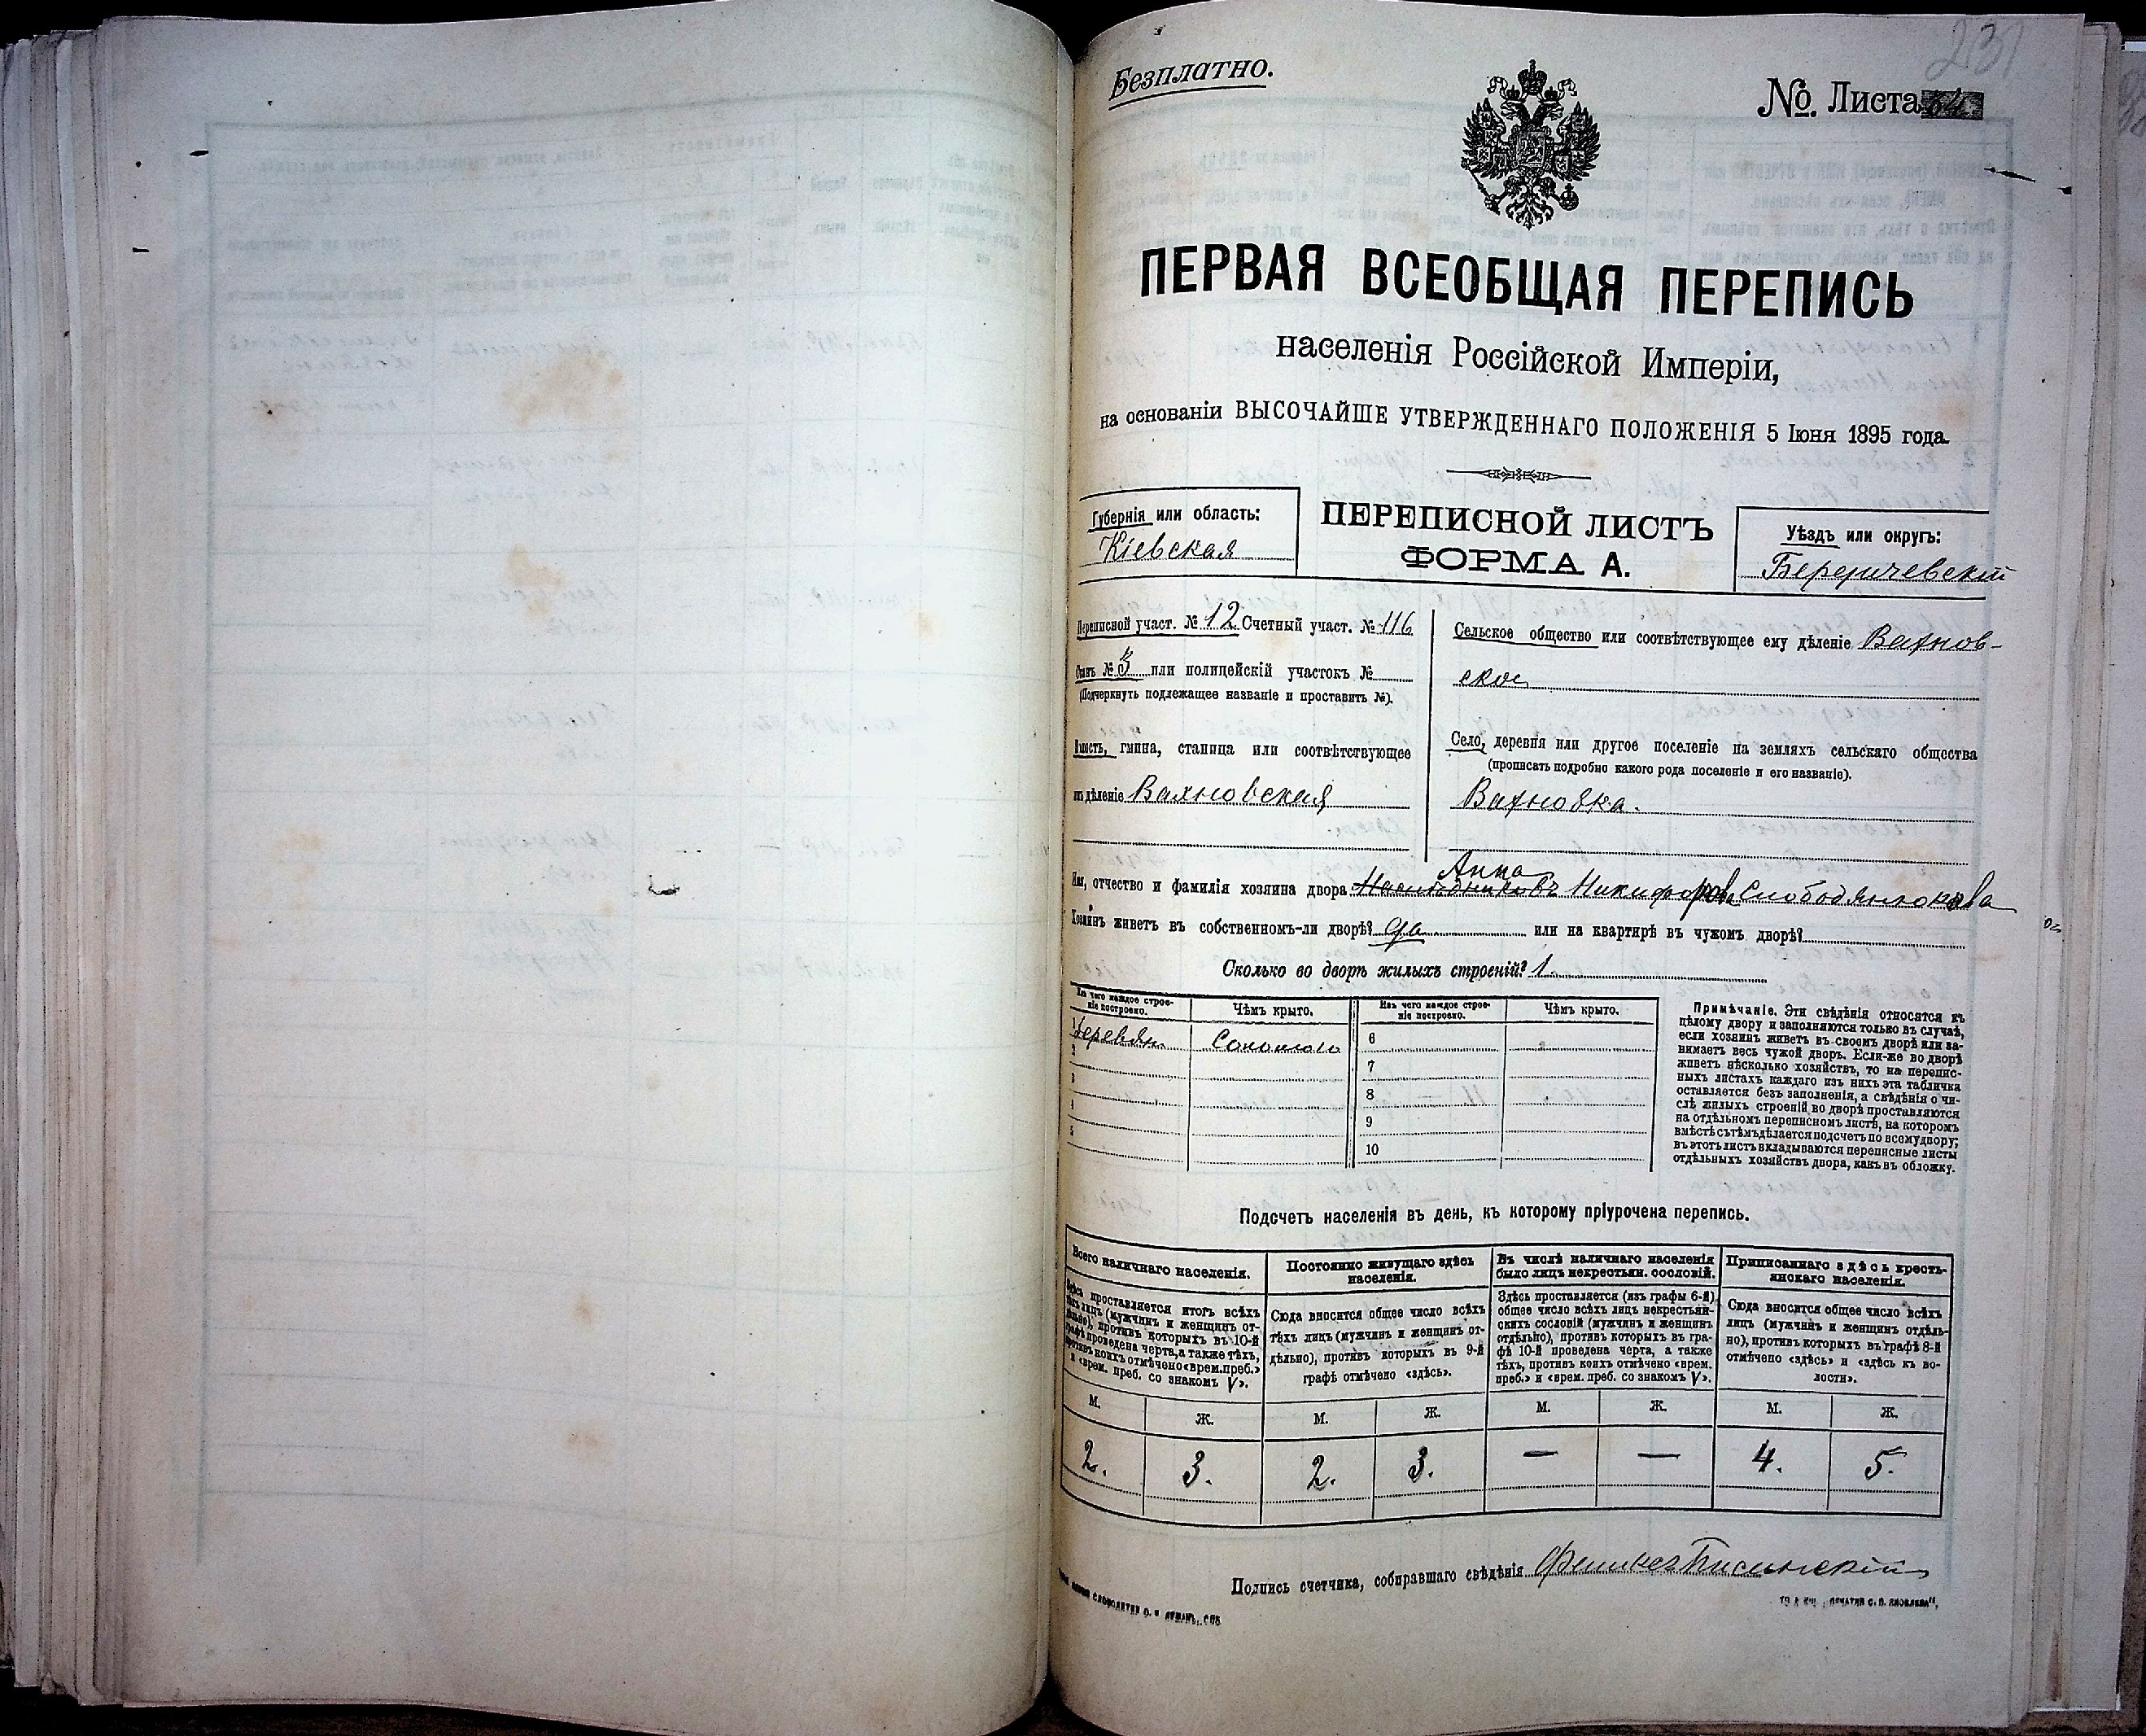 231
Безплатно.
№ Листа 64.
ПЕРВАЯ ВСЕОБЩАЯ ПЕРЕПИСЬ
населенія Россійской Имперіи,
на основаніи ВЫСОЧАЙШЕ УТВЕРЖДЕННАГО ПОЛОЖЕНІЯ 5 Іюня 1895 года.
Губернія или область:
Кіевская
ПЕРЕПИСНОЙ ЛИСТЪ
ФОРМА А.
Уѣздъ или округъ:
Бердичевскій
Переписной участ. № 12 Счетный участ. № 116
Станъ № 3 или полицейскій участокъ №
(Подчеркнуть подлежащее названіе и проставить №).
Волость, гмина, станица или соотвѣтствующее
имъ дѣленіе Вахновская
Сельское общество или соотвѣтствующее ему дѣленіе Вахнов-
ское
Село, деревня или другое поселеніе на земляхъ сельскаго общества
(прописать подробно какого рода поселеніе и его названіе).
Вахновка.
Анна
Имя, отчество и фамилія хозяина двора Никифорова Слободянюкова
Хозяинъ живетъ въ собственномъ-ли дворѣ? да или на квартирѣ въ чужомъ дворѣ?
Сколько во дворѣ жилыхъ строеній? 1.
Изъ чего каждое строе-
ніе построено.
Чѣмъ крыто.
Изъ чего каждое строе-
ніе построено.
Чѣмъ крыто.
1 Деревян. Соломою
2
3
4
5
6
7
8
9
10
Примѣчаніе. Эти свѣдѣнія относятся къ
цѣлому двору и заполняются только въ случаѣ,
если хозяинъ живетъ въ своемъ дворѣ или за-
нимаетъ весь чужой дворъ. Если-же во дворѣ
живетъ нѣсколько хозяйствъ, то на перепис-
ныхъ листахъ каждаго изъ нихъ эта табличка
оставляется безъ заполненія, а свѣдѣнія о чи-
слѣ жилыхъ строеній во дворѣ проставляются
на отдѣльномъ переписномъ листѣ, на которомъ
вмѣстѣ съ тѣмъ дѣлается подсчетъ по всему двору;
въ этотъ листъ вкладываются переписные листы
отдѣльныхъ хозяйствъ двора, какъ въ обложку.
Подсчетъ населенія въ день, къ которому пріурочена перепись.
Всего наличнаго населенія.
Здѣсь проставляется итогъ всѣхъ
тѣхъ лицъ (мужчинъ и женщинъ от-
дѣльно), противъ которыхъ въ 10-й
графѣ проведена черта, а также тѣхъ,
противъ коихъ отмѣчено «врем. преб.»
и «врем. преб. со знакомъ V».
Постоянно живущаго здѣсь
населенія.
Сюда вносится общее число всѣхъ
тѣхъ лицъ (мужчинъ и женщинъ от-
дѣльно), противъ которыхъ въ 9-й
графѣ отмѣчено «здѣсь».
Въ числѣ наличнаго населенія
было лицъ некрестьян. сословій.
Здѣсь проставляется (изъ графы 6-й),
общее число всѣхъ лицъ некрестьян-
скихъ сословій (мужчинъ и женщинъ
отдѣльно), противъ которыхъ въ гра-
фѣ 10-й проведена черта, а также
тѣхъ, противъ коихъ отмѣчено «врем.
преб.» и «врем. преб. со знакомъ V».
Приписаннаго здѣсь кресть-
янскаго населенія.
Сюда вносится общее число всѣхъ
лицъ (мужчинъ и женщинъ отдѣль-
но), противъ которыхъ въ графѣ 8-й
отмѣчено «здѣсь» и «здѣсь къ во-
лости».
М. Ж. М. Ж. М. Ж. М. Ж.
2. 3. 2. 3. — — 4. 5.
Подпись счетчика, собиравшаго свѣдѣнія Феликсъ